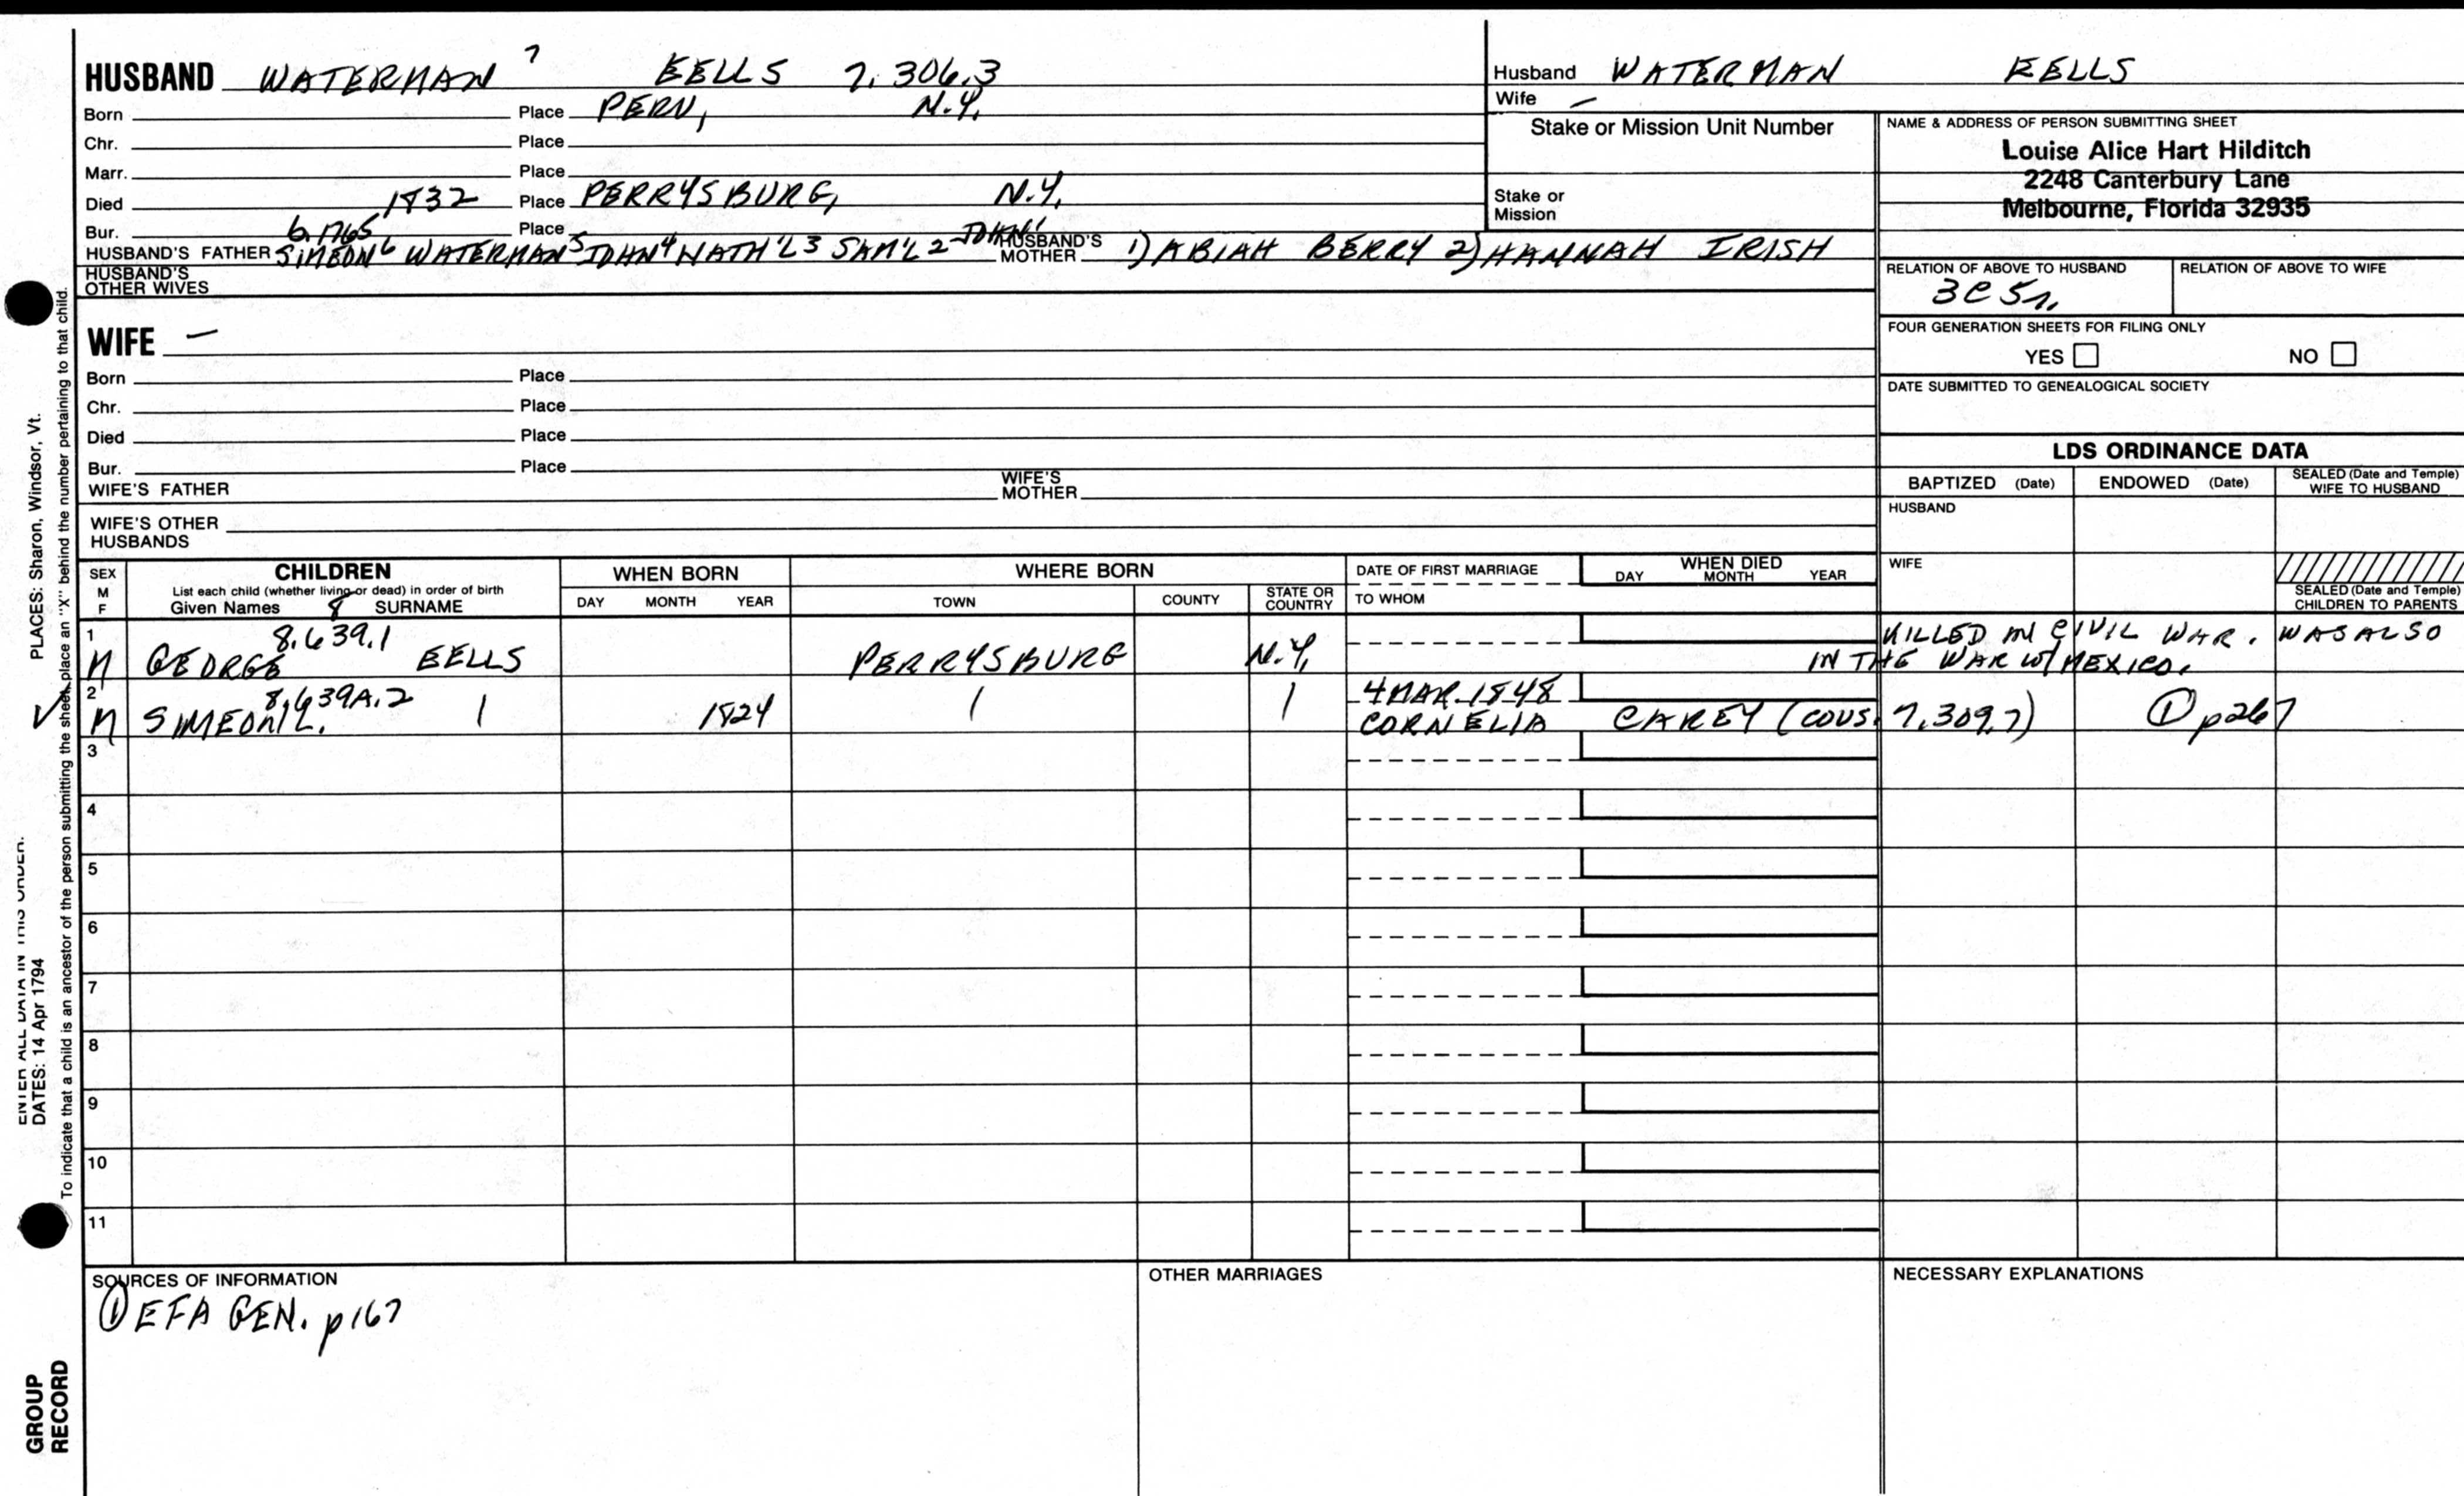 HUSBAND WATERMAN 7 EELLS 7.306.3
Born Place PERU, N.Y.
Chr. Place
Marr. Place
Died 1832 Place PERRYSBURG, N.Y.
Bur. Place
6.1765
HUSBAND'S FATHER SIMEON6 WATERMAN5 JOHN4 NATH'L3 SAM'L2 JOHN1 HUSBAND'S MOTHER 1) ABIAH BERRY 2) HANNAH IRISH
HUSBAND'S OTHER WIVES
WIFE —
Born Place
Chr. Place
Died Place
Bur. Place
WIFE'S FATHER WIFE'S MOTHER
WIFE'S OTHER HUSBANDS
Husband WATERMAN EELLS
Wife —
Stake or Mission Unit Number
Stake or Mission
NAME & ADDRESS OF PERSON SUBMITTING SHEET
Louise Alice Hart Hilditch
2248 Canterbury Lane
Melbourne, Florida 32935
RELATION OF ABOVE TO HUSBAND RELATION OF ABOVE TO WIFE
3C5r.
FOUR GENERATION SHEETS FOR FILING ONLY
YES NO
DATE SUBMITTED TO GENEALOGICAL SOCIETY
LDS ORDINANCE DATA
BAPTIZED (Date) ENDOWED (Date) SEALED (Date and Temple) WIFE TO HUSBAND
HUSBAND
WIFE
SEALED (Date and Temple) CHILDREN TO PARENTS
SEX M F
CHILDREN
List each child (whether living or dead) in order of birth
Given Names 8 SURNAME
WHEN BORN
DAY MONTH YEAR
WHERE BORN
TOWN COUNTY STATE OR COUNTRY
DATE OF FIRST MARRIAGE
TO WHOM
WHEN DIED
DAY MONTH YEAR
1 8.639.1 KILLED IN CIVIL WAR. WAS ALSO
M GEORGE EELLS PERRYSBURG N.Y. IN THE WAR W/MEXICO.
2 8.639A.2 4 MAR. 1848
M SIMEON L. 1824 CORNELIA CAREY (COUS. 7.309.7) ① p267
3
4
5
6
7
8
9
10
11
SOURCES OF INFORMATION
① EFA GEN. p167
OTHER MARRIAGES
NECESSARY EXPLANATIONS
PLACES: Sharon, Windsor, Vt.
ENTER ALL DATA IN THIS ORDER.
DATES: 14 Apr 1794
To indicate that a child is an ancestor of the person submitting the sheet, place an "X" behind the number pertaining to that child.
GROUP
RECORD